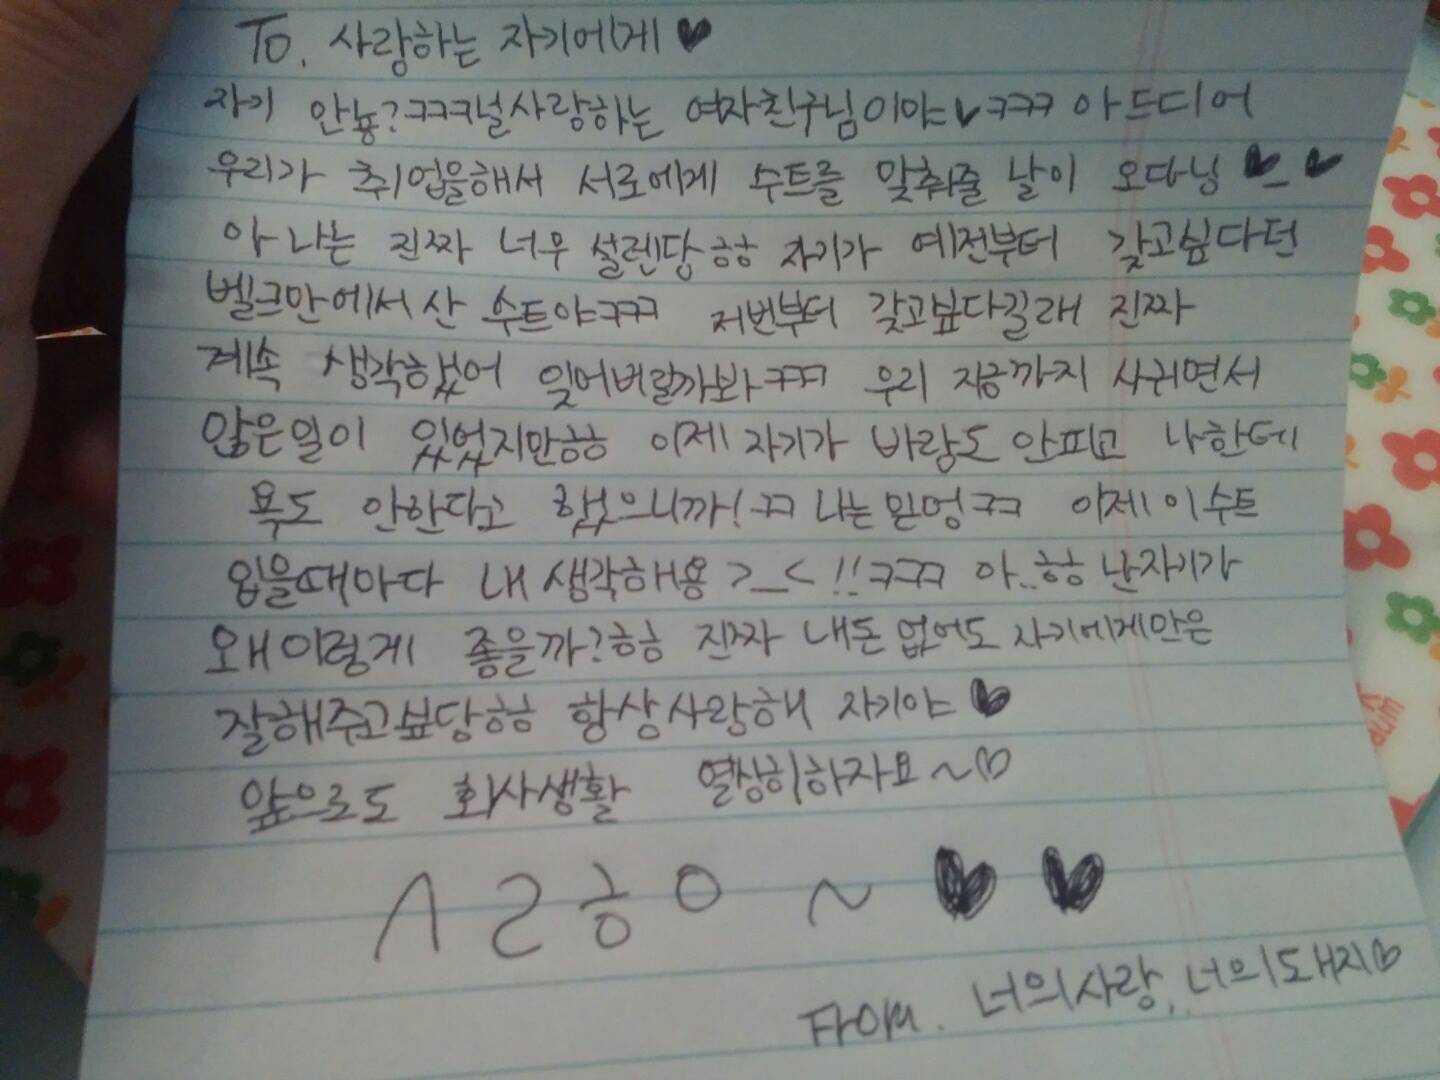 To. 사랑하는 자기에게 ♥
자기 안뇽? ㅋㅋㅋ널사랑하는 여자친구님이야♥ㅋㅋㅋ 아 드디어
우리가 취업을해서 서로에게 수트를 맞춰줄 날이 오다닝 ♥_♥
아 나는 진짜 너무 설렌당 ㅎㅎ 자기가 예전부터 갖고싶다던
벨크만에서 산 수트야ㅋㅋㅋ 저번부터 갖고싶다길래 진짜
계속 생각했어 잊어버릴까봐ㅋㅋㅋ 우리 지금까지 사귀면서
많은일이 있었지만ㅎㅎ 이제 자기가 바람도 안피고 나한테
욕도 안한다고 했으니까! ㅋㅋ 나는 믿엉ㅋㅋ 이제 이 수트
입을때마다 내 생각해용 >_< !! ㅋㅋㅋ 아..ㅎㅎ 난자기가
왜이렇게 좋을까?ㅎㅎ 진짜 내돈 없어도 자기에게만은
잘해주고싶당ㅎㅎ 항상사랑해 자기야 ♥
앞으로도 회사생활 열심히하자요~♡
ㅅㄹㅎㅇ ~ ♥ ♥
From. 너의사랑, 너의돼지♡